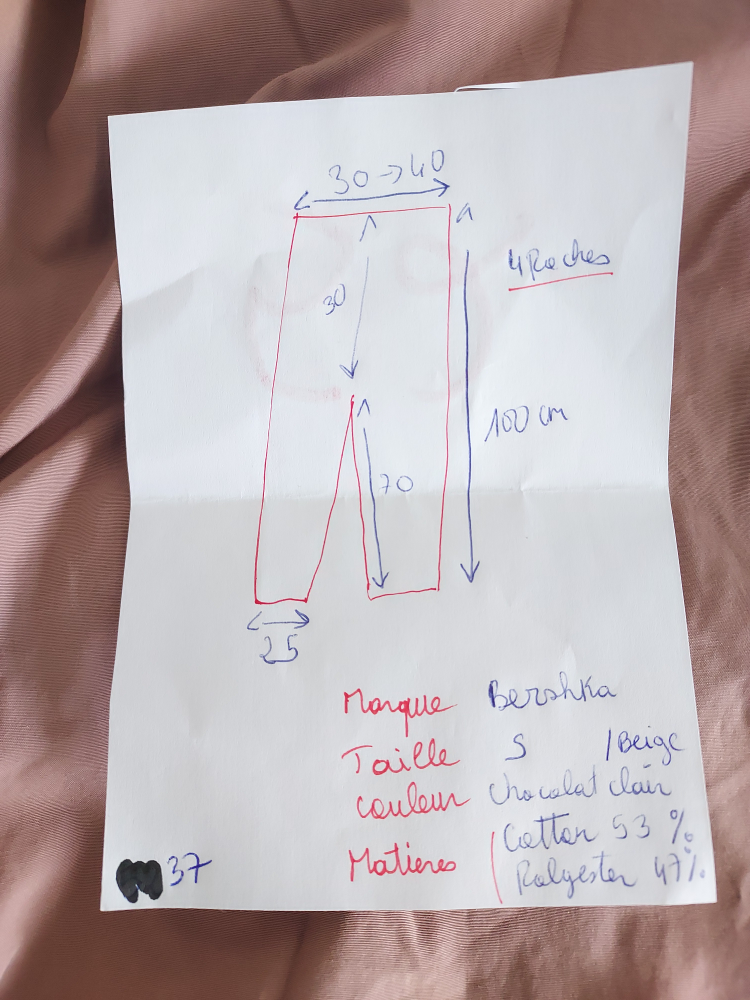 30 → 40
4 Poches
30
100 cm
70
25
Marque Bershka
Taille S /Beige
couleur chocolat clair
Matières Cotton 53 %
Polyester 47%
37